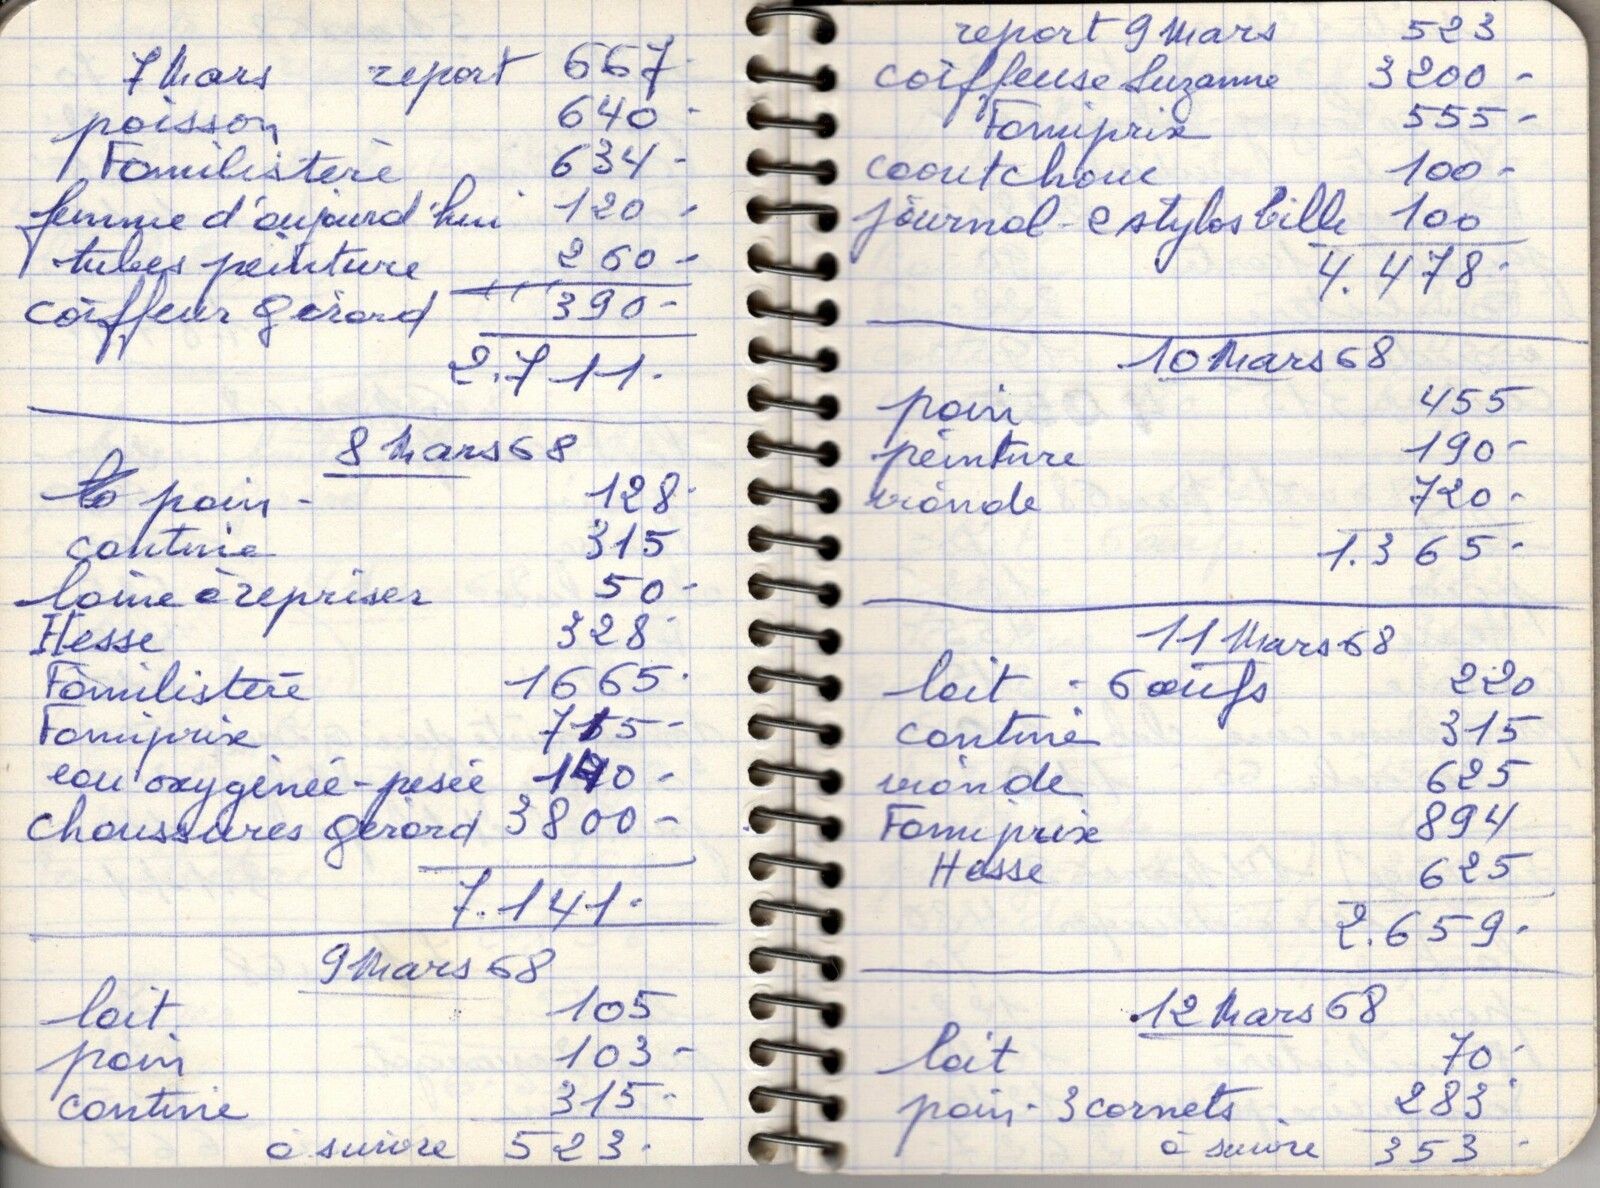 7 Mars report 667
poisson 640-
Familistère 634-
femme d'aujourd'hui 120-
tubes peinture 260-
coiffeur gérard 390-
2.711.
8 Mars 68
pain - 128-
cantine 315
laine à repriser 50-
Hesse 328-
Familistère 1665.
Famiprix 715-
eau oxygénée - pesée 140-
chaussures gérard 3800-
7.141.
9 Mars 68
lait 105
pain 103-
cantine 315-
à suivre 523.
report 9 Mars 523
coiffeuse Suzanne 3200-
Famiprix 555-
caoutchouc 100-
journal - 2 stylos bille 100
4.478.
10 Mars 68
pain 455
peinture 190-
viande 720-
1.365-
11 Mars 68
lait - 6 œufs 220
cantine 315
viande 625
Famiprix 894
Hesse 625
2.659.
12 Mars 68
lait 70-
pain - 3 cornets 283-
à suivre 353-